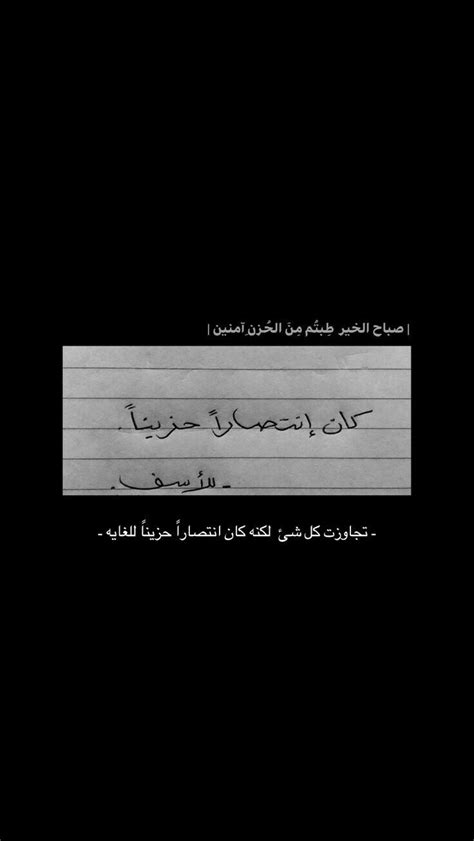 | صباح الخير طِبتُم مِنَ الحُزنِ آمنين |
كان إنتصاراً حزيناً.
- للأسف.
- تجاوزت كل شئ لكنه كان انتصاراً حزيناً للغايه -